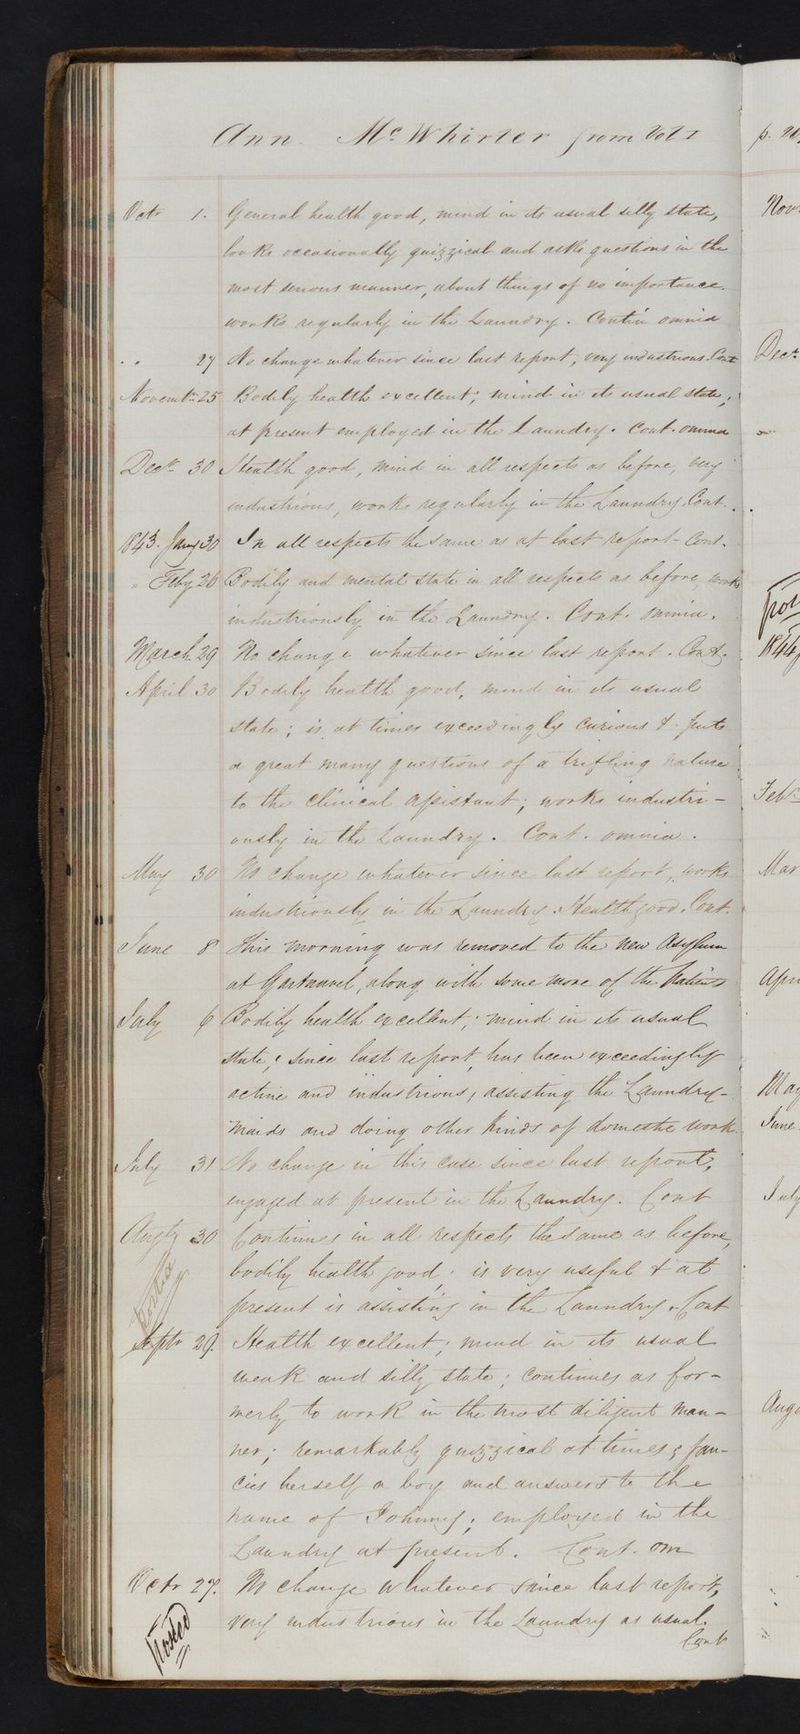 Ann McWhirter from Vol 1
Octr 1. General health good, mind in its usual silly state,
looks occasionally quizzical and asks questions in the
most serious manner, about things of no importance.
works regularly in the Laundry. Contin omnia
" " 27 No change whatever since last report, very industrious. Cont
Novembr 25 Bodily health excellent; mind in its usual state;
at present employed in the Laundry. Cont. omnia
Decr 30 Health good, mind in all respects as before, very
industrious, works regularly in the Laundry. Cont.
1843. Jany 30 In all respects the same as at last report - Cont.
" Feby 26 Bodily and mental state in all respects as before, works
industriously in the Laundry. Cont. omnia.
March 29 No change whatever since last report. Cont.
April 30 Bodily health good, mind in its usual
state; is at times exceedingly curious & puts
a great many questions of a trifling nature
to the clinical assistant; works industri-
ously in the Laundry. Cont. omnia.
May 30 No change whatever since last report, works
industriously in the Laundry. Health good. Cont.
June 8 This morning was removed to the new Asylum
at Gartnavel, along with some more of the Patients
July 6 Bodily health excellent; mind in its usual
state; since last report, has been exceedingly
active and industrious, assisting the Laundry-
maids and doing other kinds of domestic work.
July 31 No change in this case since last report,
engaged at present in the Laundry. Cont
Augty 30 Continues in all respects the same as before,
bodily health good. is very useful & at
present is assisting in the Laundry. Cont
Posted
Septr 29. Health excellent; mind in its usual
weak and silly state; continues as for-
merly to work in the most diligent man-
ner; remarkably quizzical at times; fan-
cies herself a boy and answers to the
name of Johnny; employed in the
Laundry at present. Cont. om
Octr 27. No change whatever since last report,
very industrious in the Laundry as usual.
Cont
Posted
Nov
Decr
1844
Feb
Mar
Apri
May
June
July
Augt